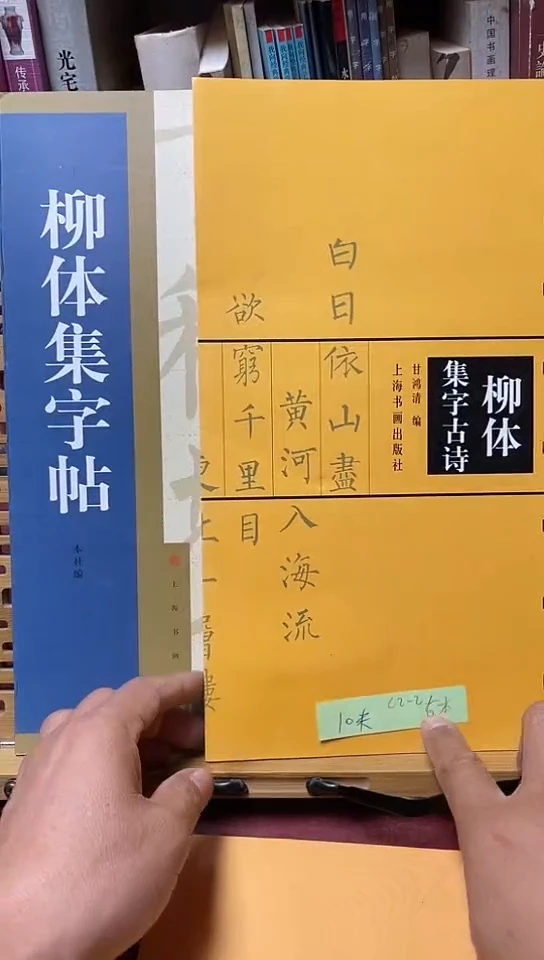 柳体集字帖
本社编
上海书画
柳体
集字古诗
甘鸿清 编
上海书画出版社
白日依山盡
黄河入海流
欲窮千里目
更上一層樓
10夹
光宅
中国书画理
传承